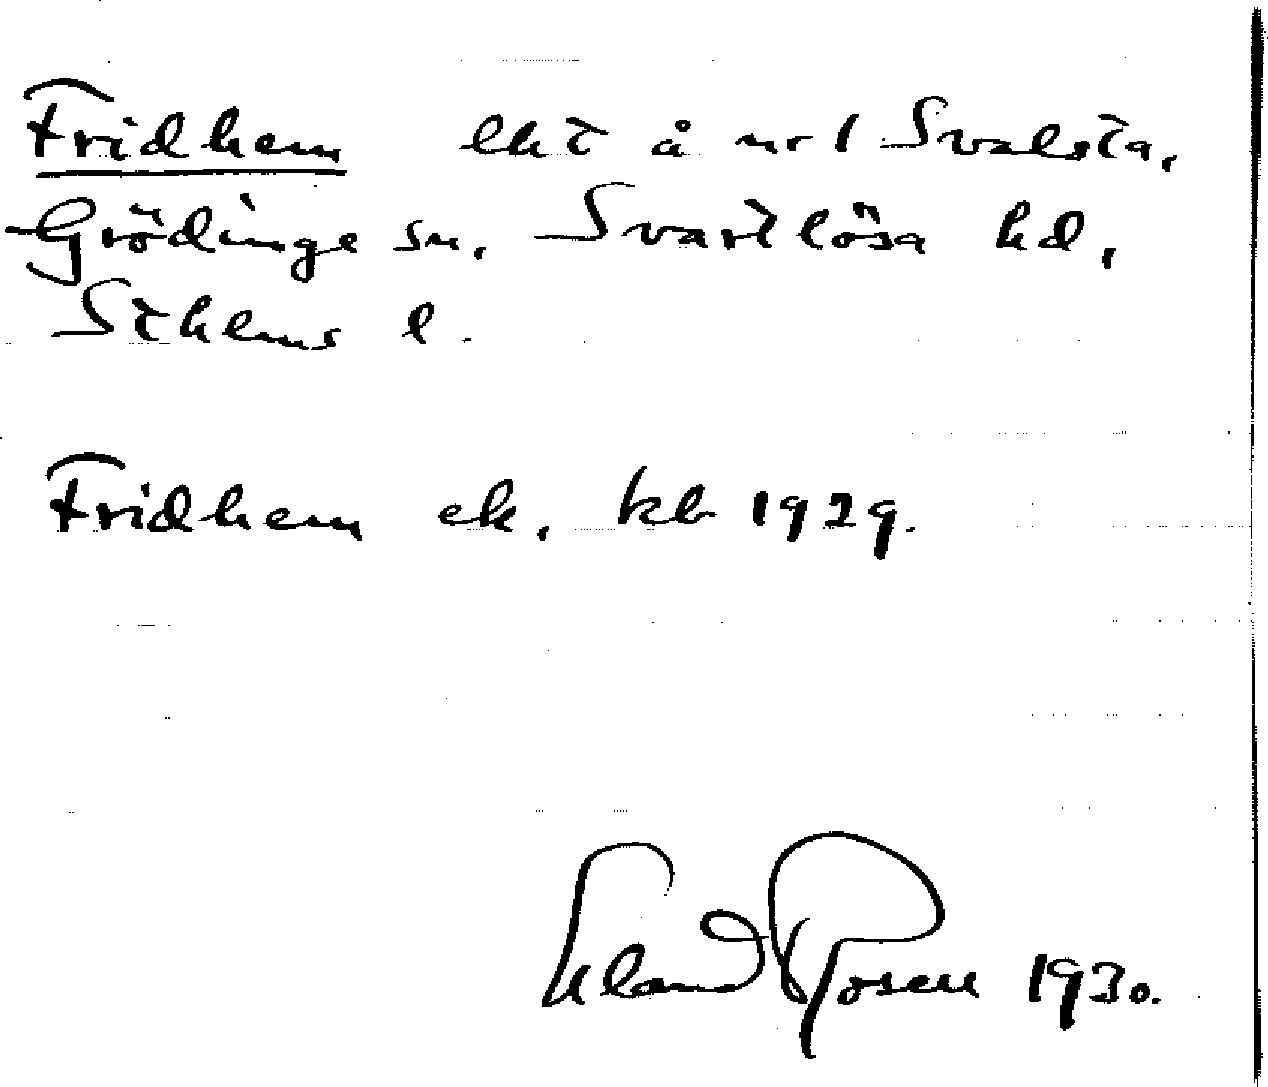 Fridhem lht å nr 1 Svalsta,
Grödinge sn. Svartlösa hd,
Sthlms l.
Fridhem ek. kb 1929.
Rosell 1930.